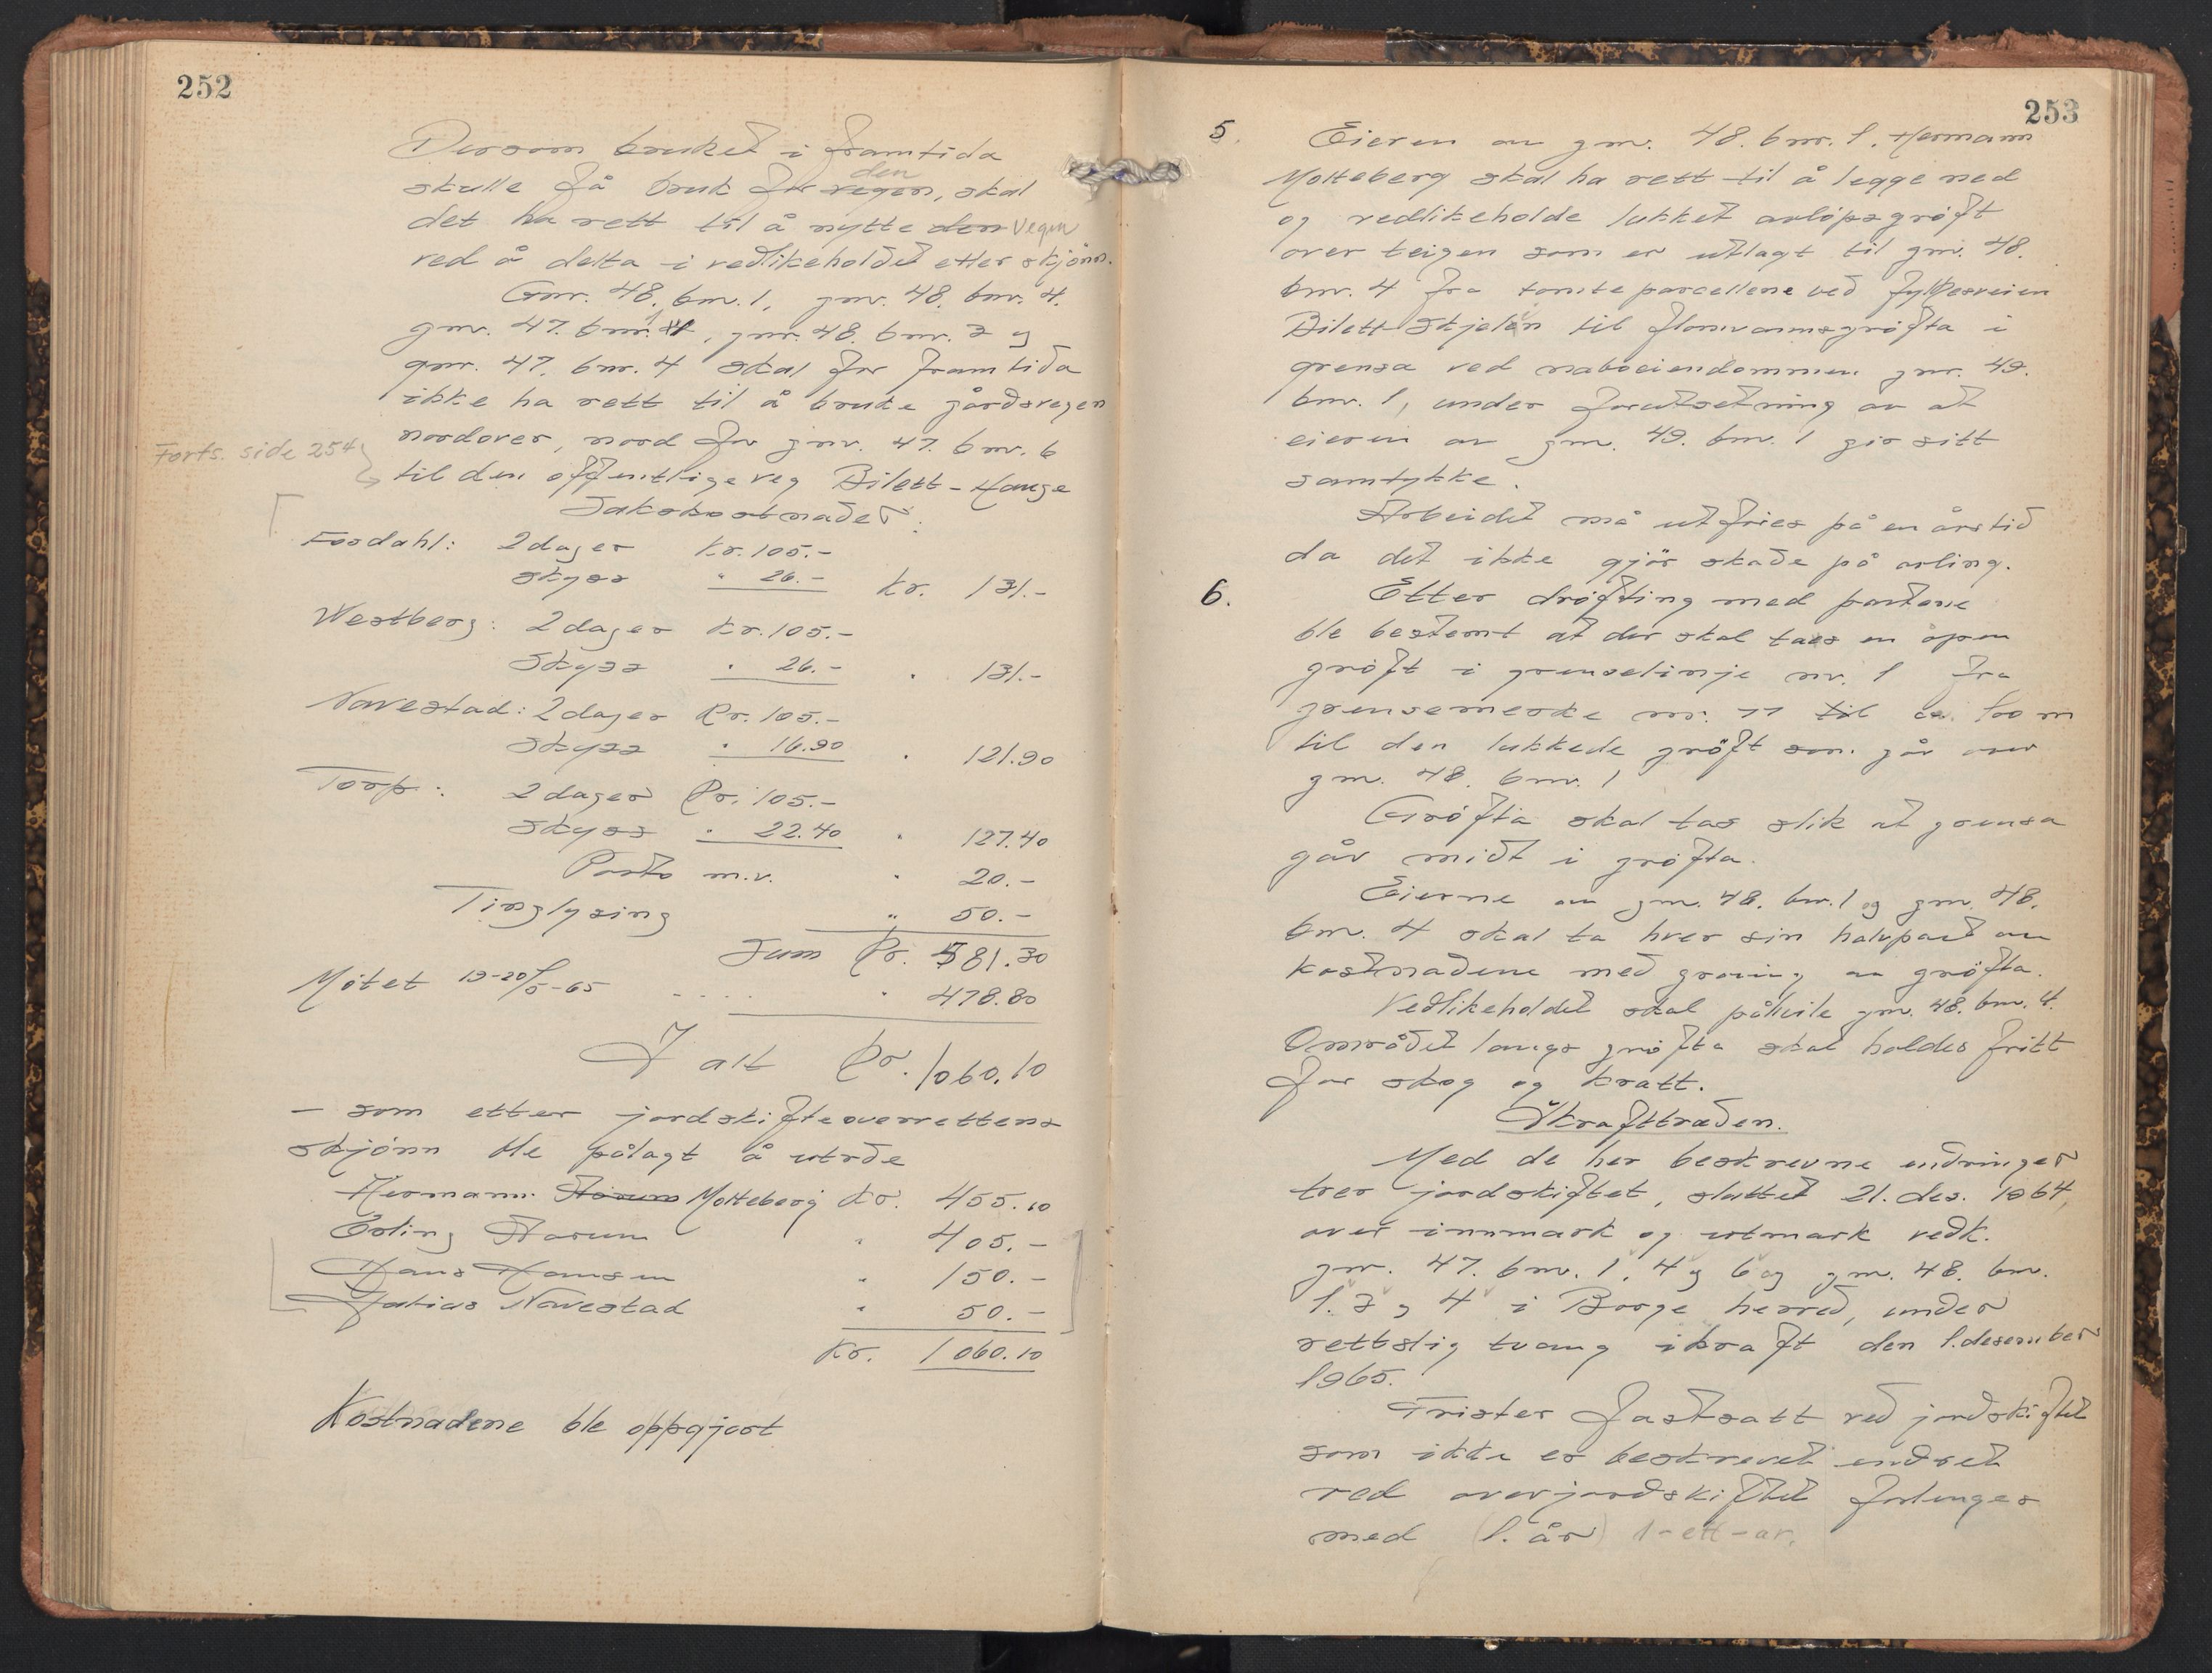 252
Dersom bruket i framtida
den
skulle få bruk for vegen, skal
det ha rett til å nytte den vegen
ved å delta i vedlikeholdet etter skjönn.
Gnr. 48, bnr. 1, gnr. 48, bnr. 4.
gnr. 47. bnr. 1, gnr. 48. bnr. 3 og
gnr. 47. bnr. 4 skal for framtida
ikke ha rett til å bruke gårdsvegen
nordover, nord for gnr. 47. bnr. 6
Forts. side 254
til den offentlige veg Bilett-Hauge
Sakskostnader:
Fosdahl: 2 dager Kr. 105.-
Skyss " 26.- Kr. 131.-
Westberg: 2 dager Kr. 105.-
Skyss " 26.- " 131.-
Navestad: 2 dager Kr. 105.-
Skyss " 16.90 " 121.90
Torp: 2 dager Kr. 105.-
Skyss " 22.40 " 127.40
Porto m.v. " 20.-
Tinglysing " 50.-
Sum Kr. 581.30
Møtet 19-20/5-65 .... " 478.80
I alt Kr. 1060.10
- som etter jordskifteoverrettens
skjönn ble pålagt å utrede
Hermann Storum Molteberg Kr. 455.10
Erling Storum " 405.-
Hans Hansen " 150.-
Julius Navestad " 50.-
Kr. 1060.10
Kostnadene ble oppgjort
253
5. Eieren av gnr. 48. bnr. 1. Hermann
Molteberg skal ha rett til å legge ned
og vedlikeholde lukket avlöpsgröft
over teigen som er utlagt til gnr. 48.
bnr. 4 fra tomteparcellene ved fylkesveien
Bilett-Skjelin til flomvannsgröfta i
grensa ved naboeiendommen gnr. 49.
bnr. 1, under forutsetning av at
eieren av gnr. 49. bnr. 1 gir sitt
samtykke.
Arbeidet må utföres på en årstid
da det ikke gjör skade på avling.
6. Etter dröfting med partene
ble bestemt at der skal taes en open
gröft i grenselinje nr. 1 fra
grensemerke nr. 11 til ca. 100 m
til den lukkede gröft som går over
gnr. 48. bnr. 1
Gröfta skal tas slik at grensa
går midt i gröfta.
Eierne av gnr. 48. bnr. 1 og gnr. 48.
bnr. 4 skal ta hver sin halvpart av
kostnadene med graving av gröfta.
Vedlikeholdet skal påhvile gnr. 48. bnr. 4.
Området langs gröfta skal holdes fritt
for skog og kratt.
Ikrafttræden.
Med de her beskrevne endringer
trer jordskiftet, sluttet 21. des. 1964,
over innmark og utmark vedk.
gnr. 47. bnr. 1, 4 og 6 og gnr. 48. bnr.
1. 3 og 4 i Borge herred, under
rettslig tvang ikraft den 1. desember
1965.
Frister fastsatt ved jordskiftet
som ikke er beskrevet endret
ved overjordskiftet forlenges
med (1. år) 1-ett-år.